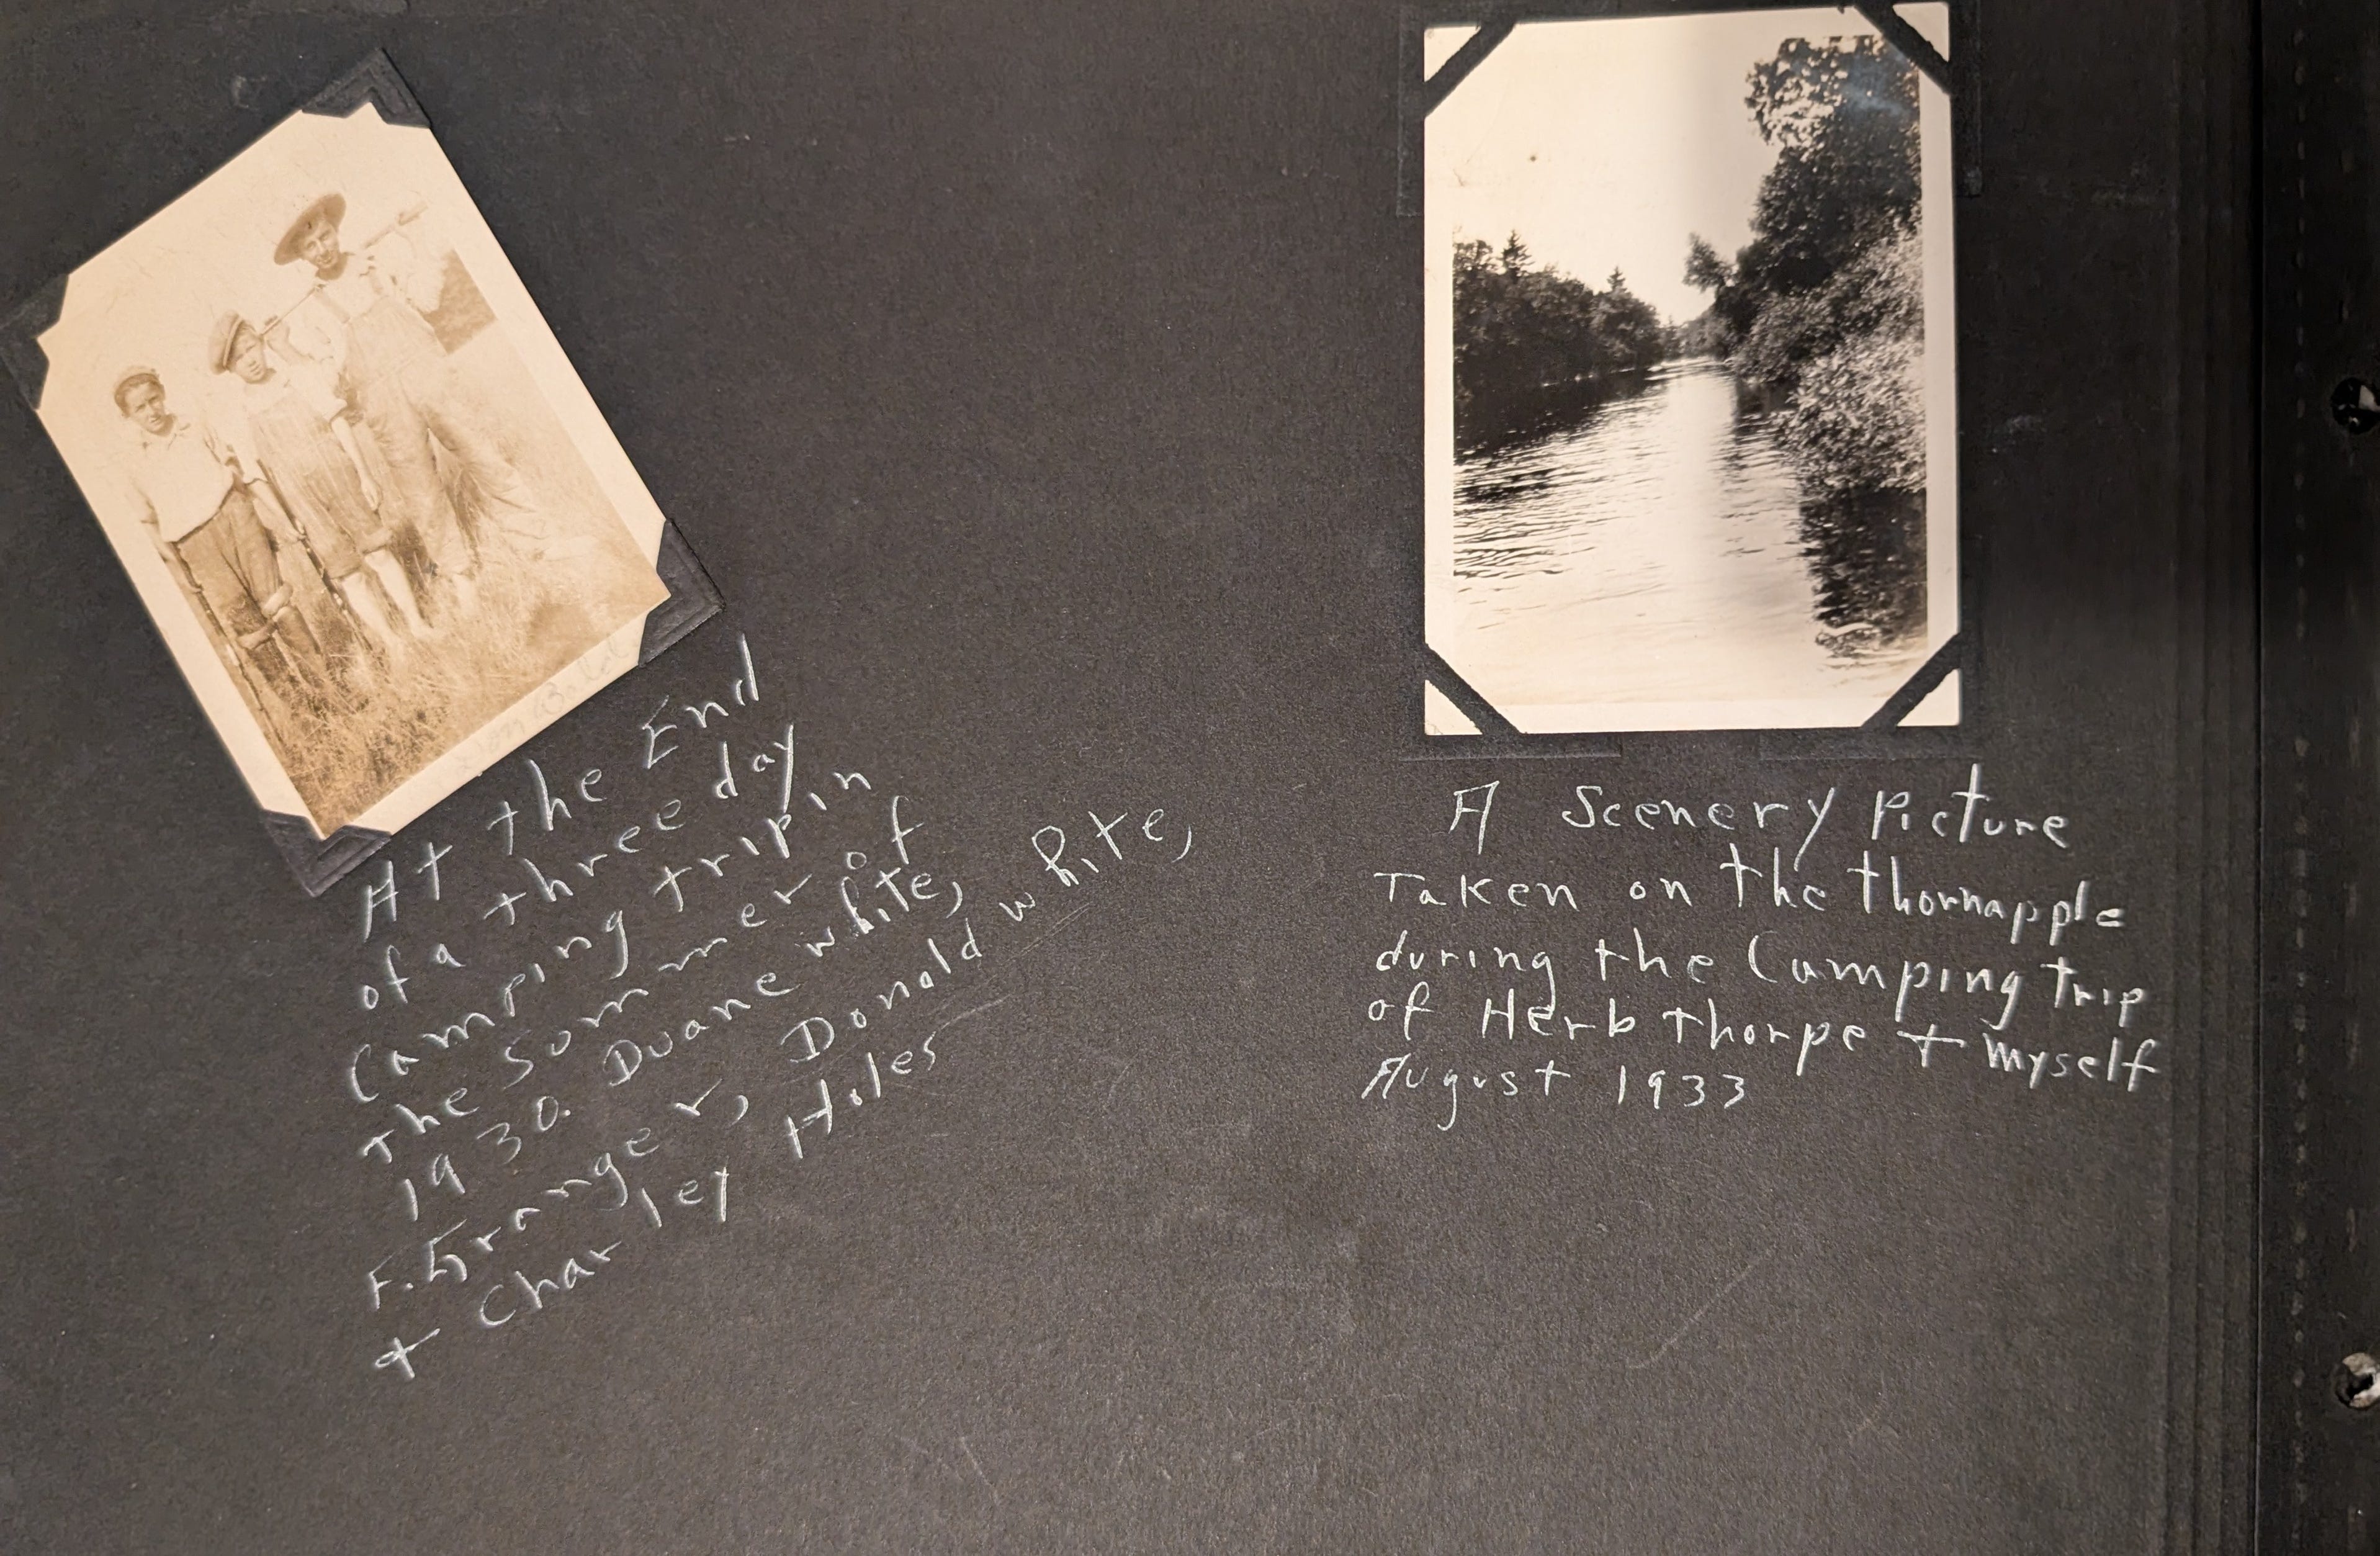 At the End
of a three day
Camping trip in
the sommer of
1930. Duane white,
F. Granger, Donald white,
+ Charley Holes
A Scenery Picture
Taken on the thornapple
during the Camping trip
of Herb thorpe + myself
August 1933